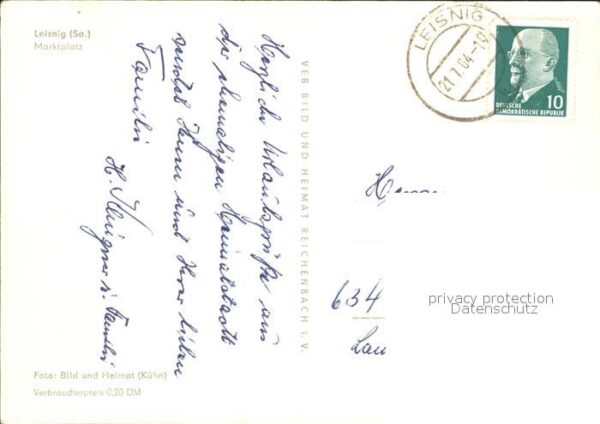 Leisnig (Sa.)
Marktplatz
Herzliche Urlaubsgrüße aus
der ehemaligen Heimatstadt
sendet Ihnen und Ihrer lieben
Familie
H. u. Familie
Foto: Bild und Heimat (Kühn)
Verbraucherpreis 0,20 DM
VEB BILD UND HEIMAT REICHENBACH i. V.
LEISNIG
21.7.64
10
DEUTSCHE
DEMOKRATISCHE REPUBLIK
634
Lau
privacy protection
Datenschutz